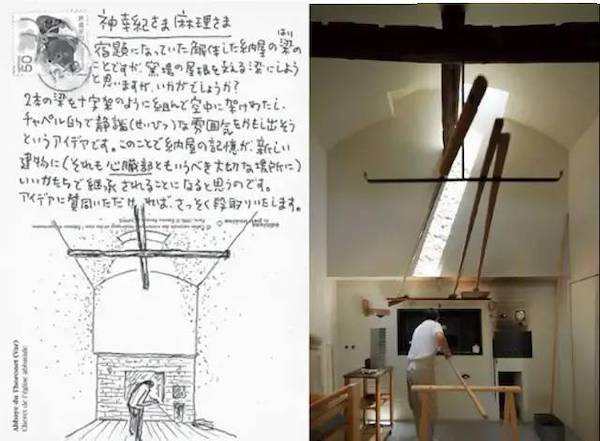 神幸紀さま 麻理さま
はり
宿題になっていた解体した納屋の梁の
ことですが、窯場の屋根を支える梁にしよう
と思いますが、いかがでしょうか?
2本の梁を十字架のように組んで空中に架けわたし、
チャペル的で静謐(せいひつ)な雰囲気をかもし出そう
というアイデアです。このことで納屋の記憶が新しい
建物に(それも心臓部ともいうべき大切な場所に)
いいかたちで継承されることになると思うのです。
アイデアに賛同いただければ、さっそく段取りいたします。
50
éditions
Abbaye du Thoronet (Var)
Chevet de l'église abbatiale